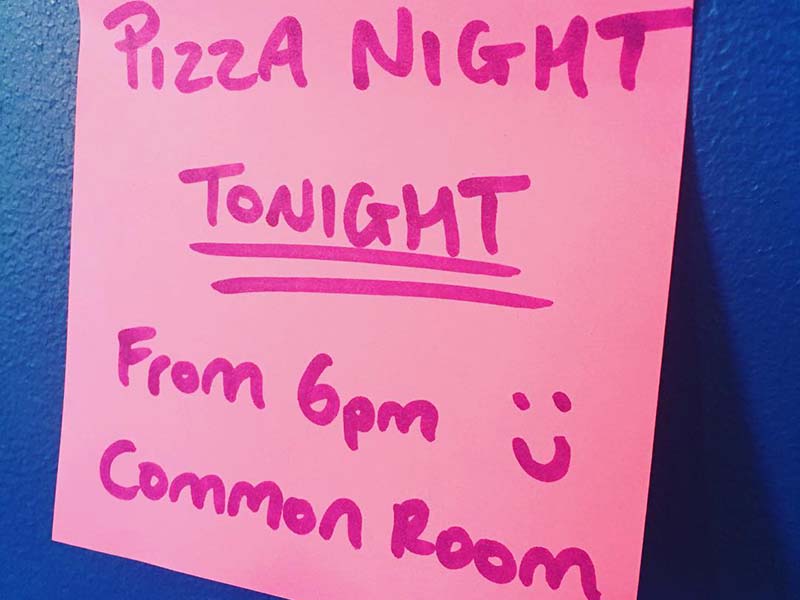 PIZZA NIGHT
TONIGHT
From 6pm
Common Room